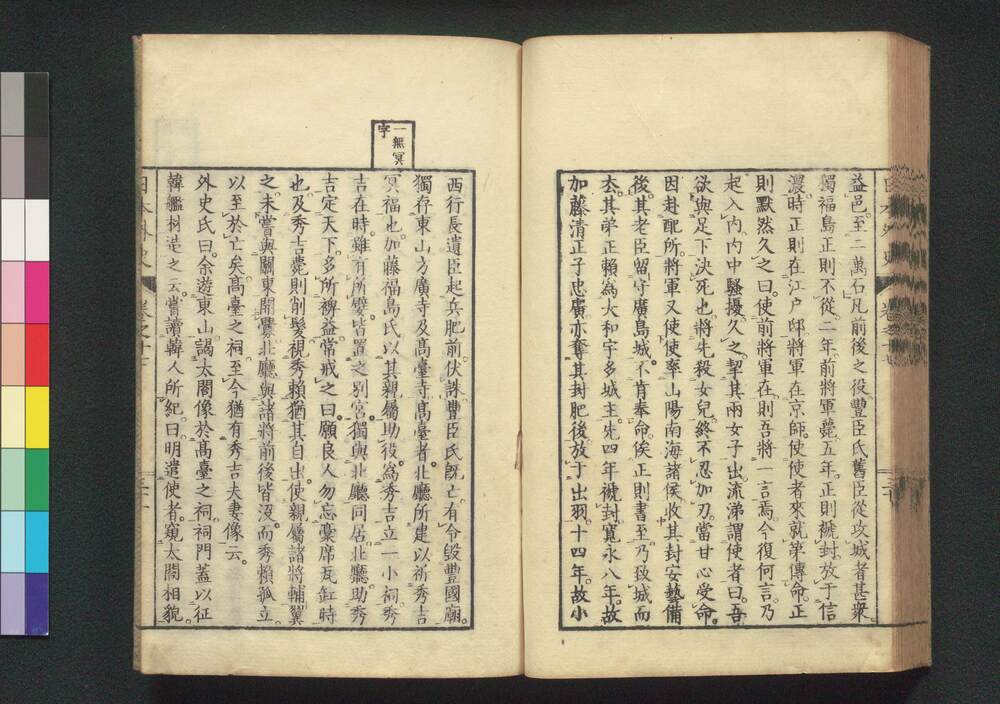 益邑至二萬石凡前後之役豐臣氏舊臣從攻城者甚衆。
獨福島正則不從二年前將軍薨五年正則褫封放于信
濃時正則在江户邸將軍在京師使使者來就第傳命正
則默然久之曰使前將軍在則吾將一言焉今復何言乃
起入内内中騷擾久之挈其兩女子出流涕謂使者曰吾
欲與足下決死也將先殺女兒終不忍加刃當甘心受命。
因赴配所將軍又使使率山陽南海諸侯收其封安藝備
後其老臣留守廣島城不肯奉命俟正則書至乃致城而
去其弟正賴爲大和宇多城主先四年褫封寬永八年故
加藤清正子忠廣亦奪其封肥後放于出羽十四年故小
西行長遺臣起兵肥前伏誅豐臣氏既亡有令毀豐國廟。
獨存東山方廣寺及高臺寺高臺者北廳所建以祈秀吉
冥福也加藤福島氏以其親屬助役爲秀吉立一小祠秀
吉在時雖有所嬖皆置之别宮獨與北廳同居北廳助秀
吉定天下多所裨益常戒之曰願良人勿忘藁席瓦缸時
也及秀吉薨則削髮視秀賴猶其自出使親屬諸將輔翼
之未嘗與關東開釁北廳與諸將前後皆沒而秀賴孤立
以至於亡矣高臺之祠至今猶有秀吉夫妻像云。
外史氏曰余遊東山謁太閤像於高臺之祠祠門蓋以征
韓艦材造之云嘗讀韓人所紀曰明遣使者窺太閤相貌。
一無冥
字